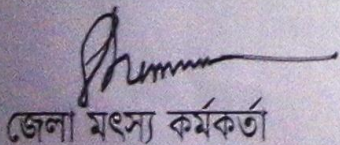 জেলা মৎস্য কর্মকর্তা